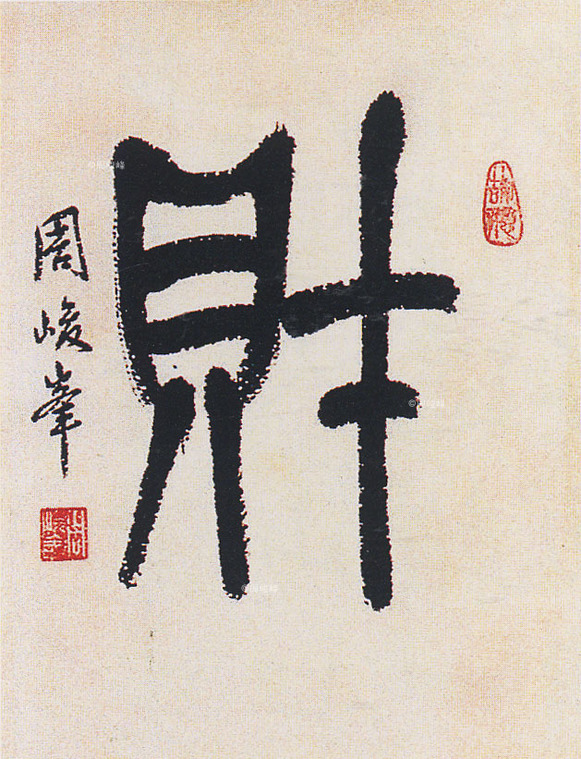 財
周峻峯